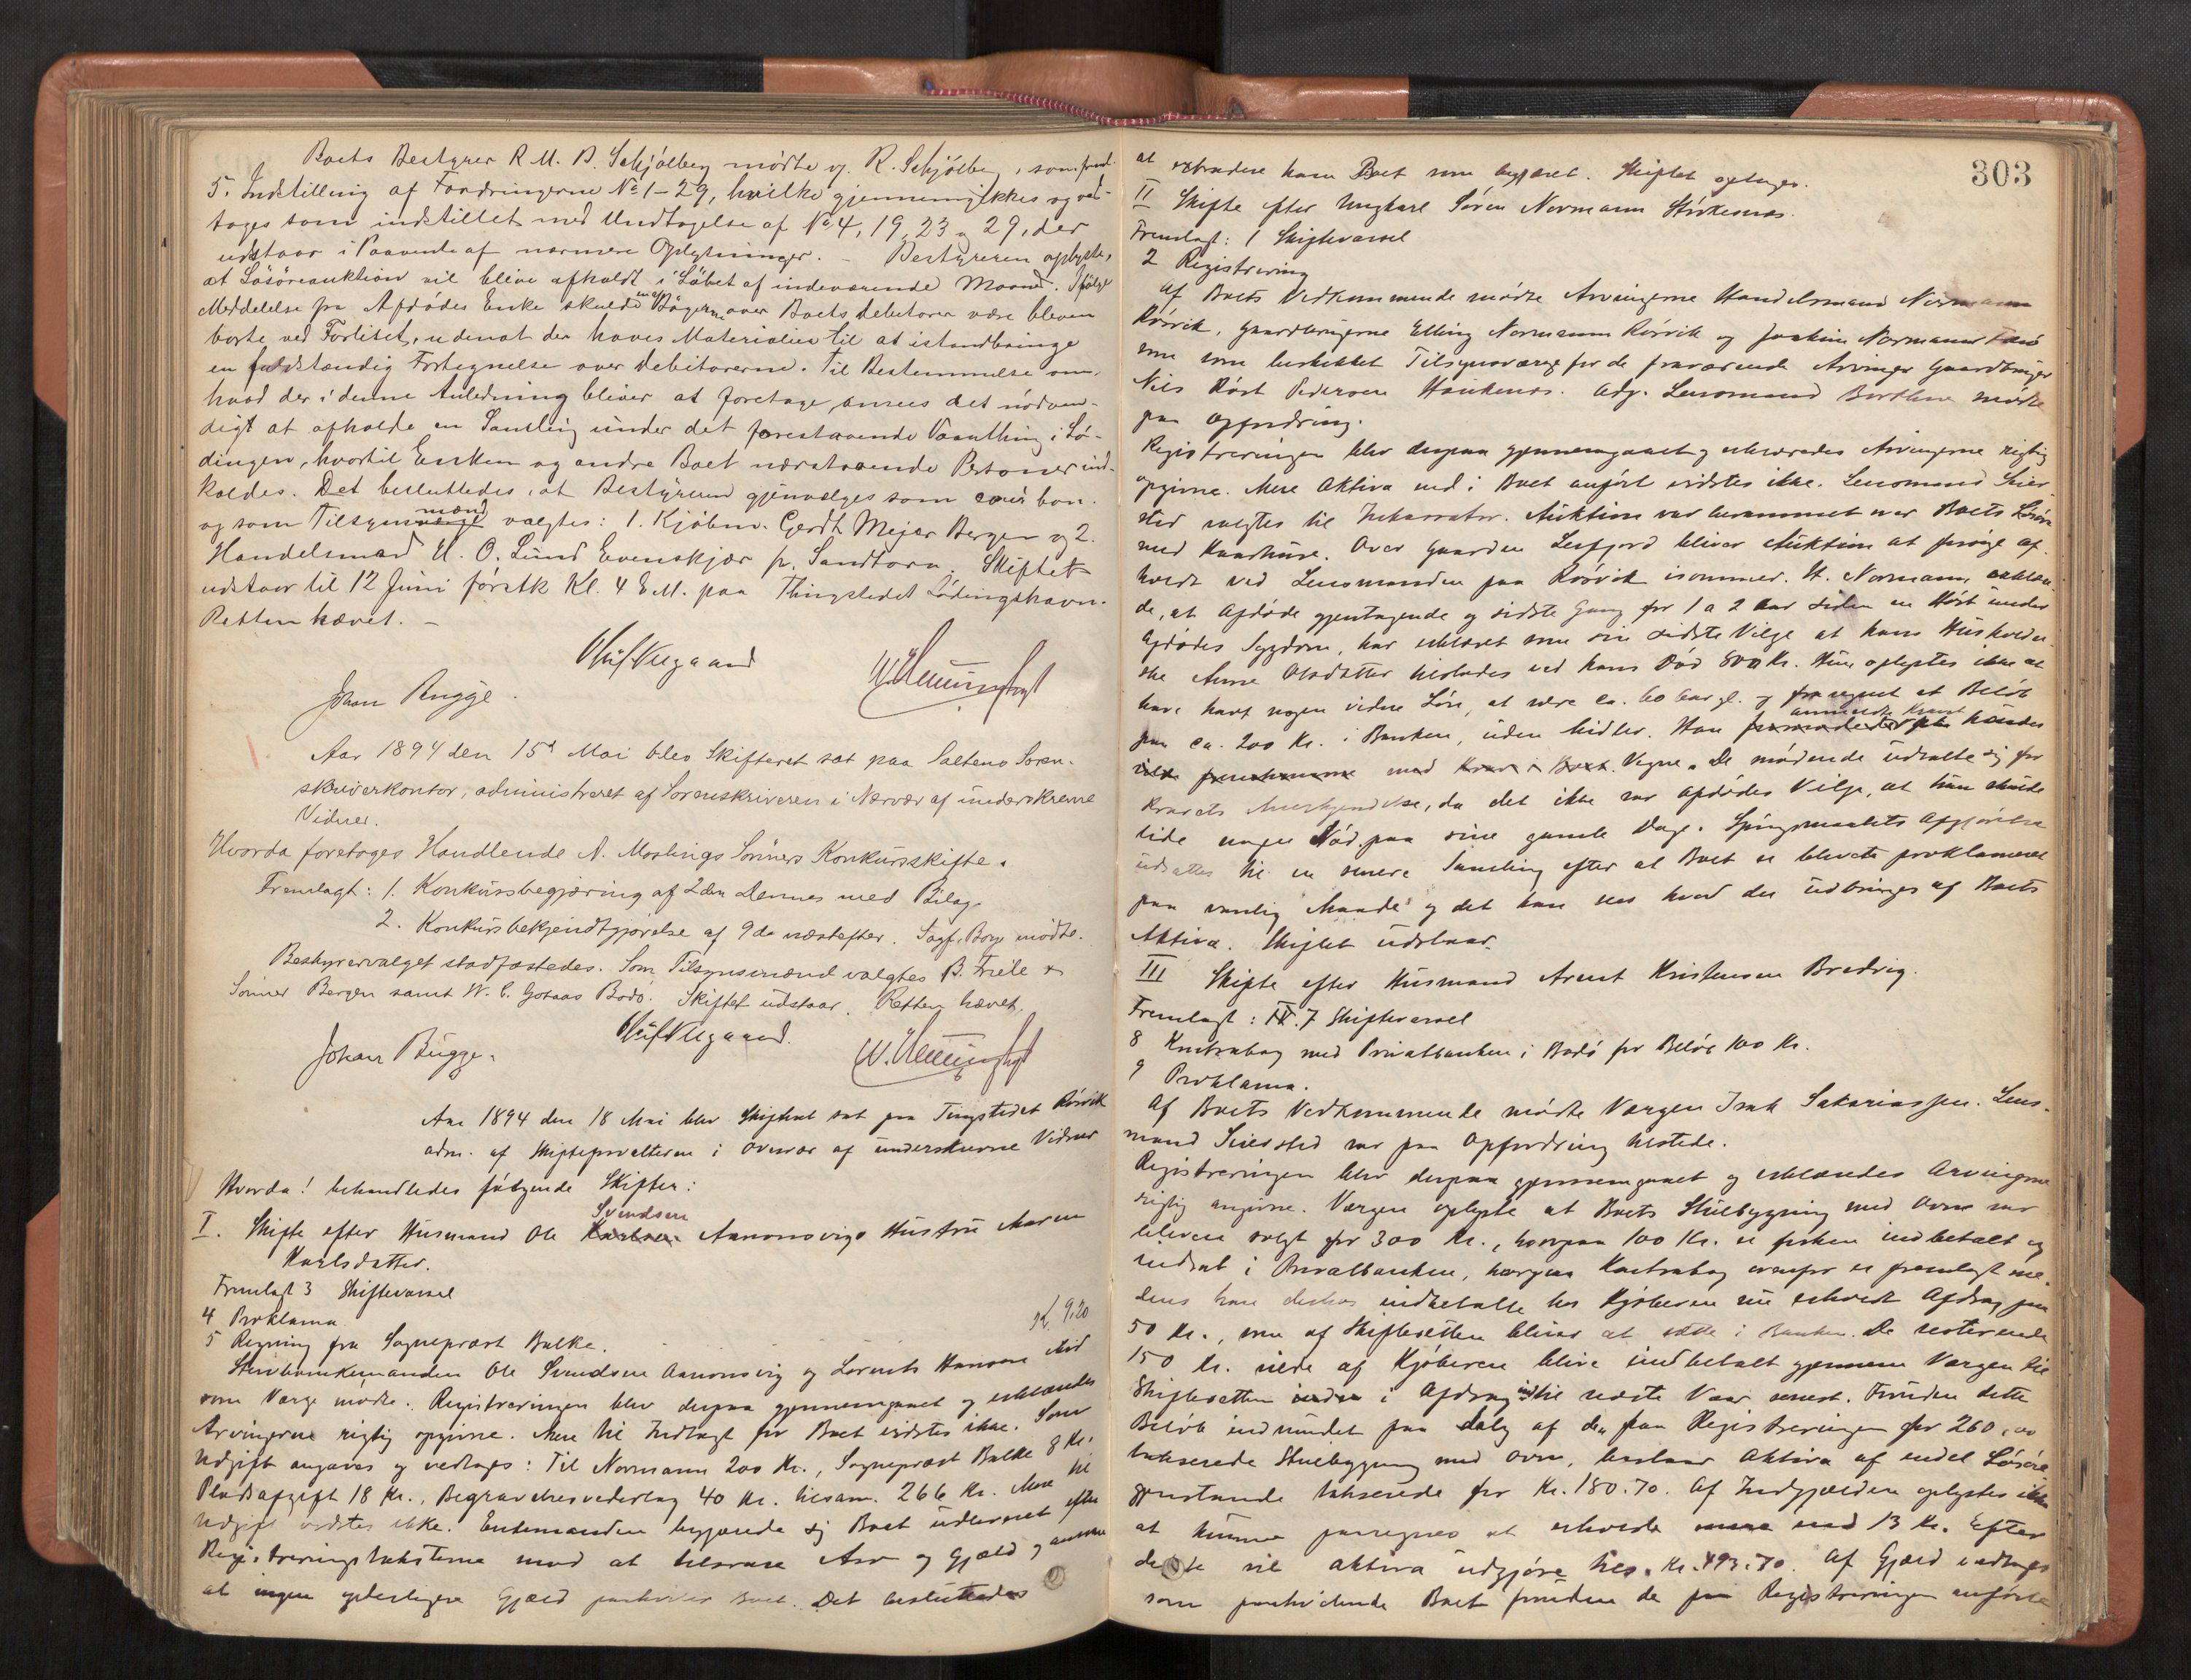 Boets Bestyrer R. M. B. Schjölberg mödte og R. Schjölberg, som freml.
5. Indstilling af Fordringerne No 1-29, hvilke gjennemgikkes og ved-
toges som indstillet med Undtagelse af No 4, 19, 23 og 29, der
udstaar i Paavente af nærmere Oplysninger. - Bestyreren oplyste,
at Lösöreauktion vil blive afholdt i Löbet af indeværende Maaned. Ifölge
Meddelelse fra Afdödes Enke skulde Bögerne over Boets Debitorer være bleven
borte ved Forliset, uden at der haves Materialier til at istandbringe
en fuldstændig Fortegnelse over Debitorerne. Til Bestemmelse om,
hvad der i denne Anledning bliver at foretage, ansees det nödven-
digt at afholde en Samling under det forestaaende Vaarthing i Lö-
dingen, hvortil Enken og andre Boet nærstaaende Personer ind-
kaldes. Det besluttedes, at Bestyreren gjenvælges som saadan
og som Tilsynsmænd valgtes: 1. Kjöbm. Gerdt Mejer Bergen og 2.
Handelsmand H. O. Lund Evenskjær pr. Sandtorv. Skiftet
udstaar til 12 Juni förstk Kl. 4 E.M. paa Thingstedet Lödingshavn.
Retten hævet. -
Johan Bugge.
Aar 1894 den 15d Mai blev Skifteret sat paa Saltens Soren-
skriverkontor, administreret af Sorenskriveren i Nærvær af underskrevne
Vidner.
Hvorda foretoges Handlende A. Maalings Sönners Konkursskifte.
Fremlagt: 1. Konkursbegjæring af 2den dennes med Bilag.
2. Konkursbekjendtgjörelse af 9de næstefter. Sagf. Borg mödte.
Bestyrervalget stadfæstedes. Som Tilsynsmænd valgtes B. Friele &
Sönner Bergen samt W. C. Gotaas Bodö. Skiftet udstaar. Retten hævet.
Johan Bugge.
Aar 1894 den 18 Mai blev Skifteret sat paa Tingstedet Rösvik
adm. af Skifteforvalteren i Overvær af underskrevne Vidner
Hvorda! behandledes fölgende Skifter:
I. Skifte efter Husmand Ole Svendsen Aanonsvigs Hustru Maren
Karlsdatter.
Fremlagt 3 Skiftevarsel
4 Proklama.
5 Regning fra Sogneprest Balke. Kr. 9.20
Stervboenkemanden Ole Svendsen Aanonsvig og Lorents Hansen
som Værge mödte. Registreringen blev derpaa gjennemgaaet og erklæredes
Arvingerne rigtig opgivne. Mere til Indtægt for Boet vidstes ikke. Som
Udgift angaves og vedtoges: Til Normann 200 Kr., Sogneprest Balke 8 Kr.
Pladsafgift 18 Kr., Begravelsesvederlag 40 Kr. tilsam. 266 Kr. Mere til
Udgift vidstes ikke. Enkemanden begjærede sig Boet udleveret efter
Registreringstaksterne mod at tilsvare Arv og Gjæld og
at ingen yderligere Gjæld paahviler Boet. Det besluttedes
303
at extradere ham Boet som begjæret. Skiftet optages.
II Skifte efter Ungkarl Sören Normann
Fremlagt: 1 Skiftevarsel
2 Registrering
Af Boets Vedkommende mödte Arvingerne Handelsmand Normann
Rösvik, Gaardbrugerne Elling Normann Rösvik og Joakim Normann
som som beskikket Tilsynsværge for de fraværende Arvinger Gaardbruger
Nils Pedersen Adj. Lensmand mödte
paa Opfordring.
Registreringen blev derpaa gjennemgaaet og erklæredes Arvingerne rigtig
opgivne. Mere Aktiva end i Boet anfört vidstes ikke. Lensmand Sier-
sted valgtes til Inkassator. Auktion var berammet over Boets Lösöre
med Vaarhuse. Over Gaarden Leifjord bliver Auktion at foröge af-
holdt ved Lensmanden paa Rösvik isommer. H. Normann erklære-
de, at Afdöde gjentagende og sidste Gang for 1 a 2 Aar siden en Höst under
Afdödes Sygdom, har erklæret som sin sidste Vilje at hans Husholder-
ske Anne Olsdatter tilstodes ved hans Död 800 Kr. Hun oplystes ikke at
have havt nogen videre Lön, at være ca. 60 Aar gl. og fraregnet et Belöb
paa ca. 200 Kr. i Banken, uden Midler. Han anmeldte Kravet paa hendes
Vegne. De mödende udtalte sig for
Kravets Anerkjendelse, da det ikke var Afdödes Vilje, at hun skulde
lide nogen Nöd paa sine gamle Dage. Spörgsmaalets Afgjörelse
udsættes til en senere Samling efter at Boet er blevet proklameret
paa vanlig Maade og det kan sees hvad der udbringes af Boets
Aktiva. Skiftet udstaar.
III Skifte efter Husmand Arent Kristensen Bredvig.
Fremlagt: 7 Skiftevarsel
8 Kontrabog med Privatbanken i Bodö for Belöb 100 Kr.
9 Proklama.
Af Boets Vedkommende mödte Værgen Isak Sakariassen. Lens-
mand Siersted var paa Opfordring tilstede.
Registreringen blev derpaa gjennemgaaet og erklæredes Arvingerne
rigtig angivne. Værgen oplyste at Boets Stuebygning med Ovn var
bleven solgt for 300 Kr., hvorpaa 100 Kr. er indbetalt og
indsat i Privatbanken, hvorpaa Kontrabog ovenfor er fremlagt me-
dens han derhos indbetalte hos Kjöberen nu erholdt Afdrag paa
50 Kr., som af Skifteretten bliver at sætte i Banken. De resterende
150 Kr. vilde af Kjöberen blive indbetalt gjennem Værgen til
Skifteretten i Afdrag indtil næste Vaar senest. Foruden dette
Belöb indvundet paa Salg af den paa Registreringen for 260,00
takserede Stuebygning med Ovn, bestaar Aktiva af endel Lösöre
gjenstande takserede for Kr. 180.70. Af Indgjælden oplystes ikke
at kunne paaregnes at erholde mere end 13 Kr. Efter
dette vil Aktiva udgjöre tils. Kr. 493.70. Af Gjæld vedtoges
som paahvilende Boet foruden de paa Registreringen anförte